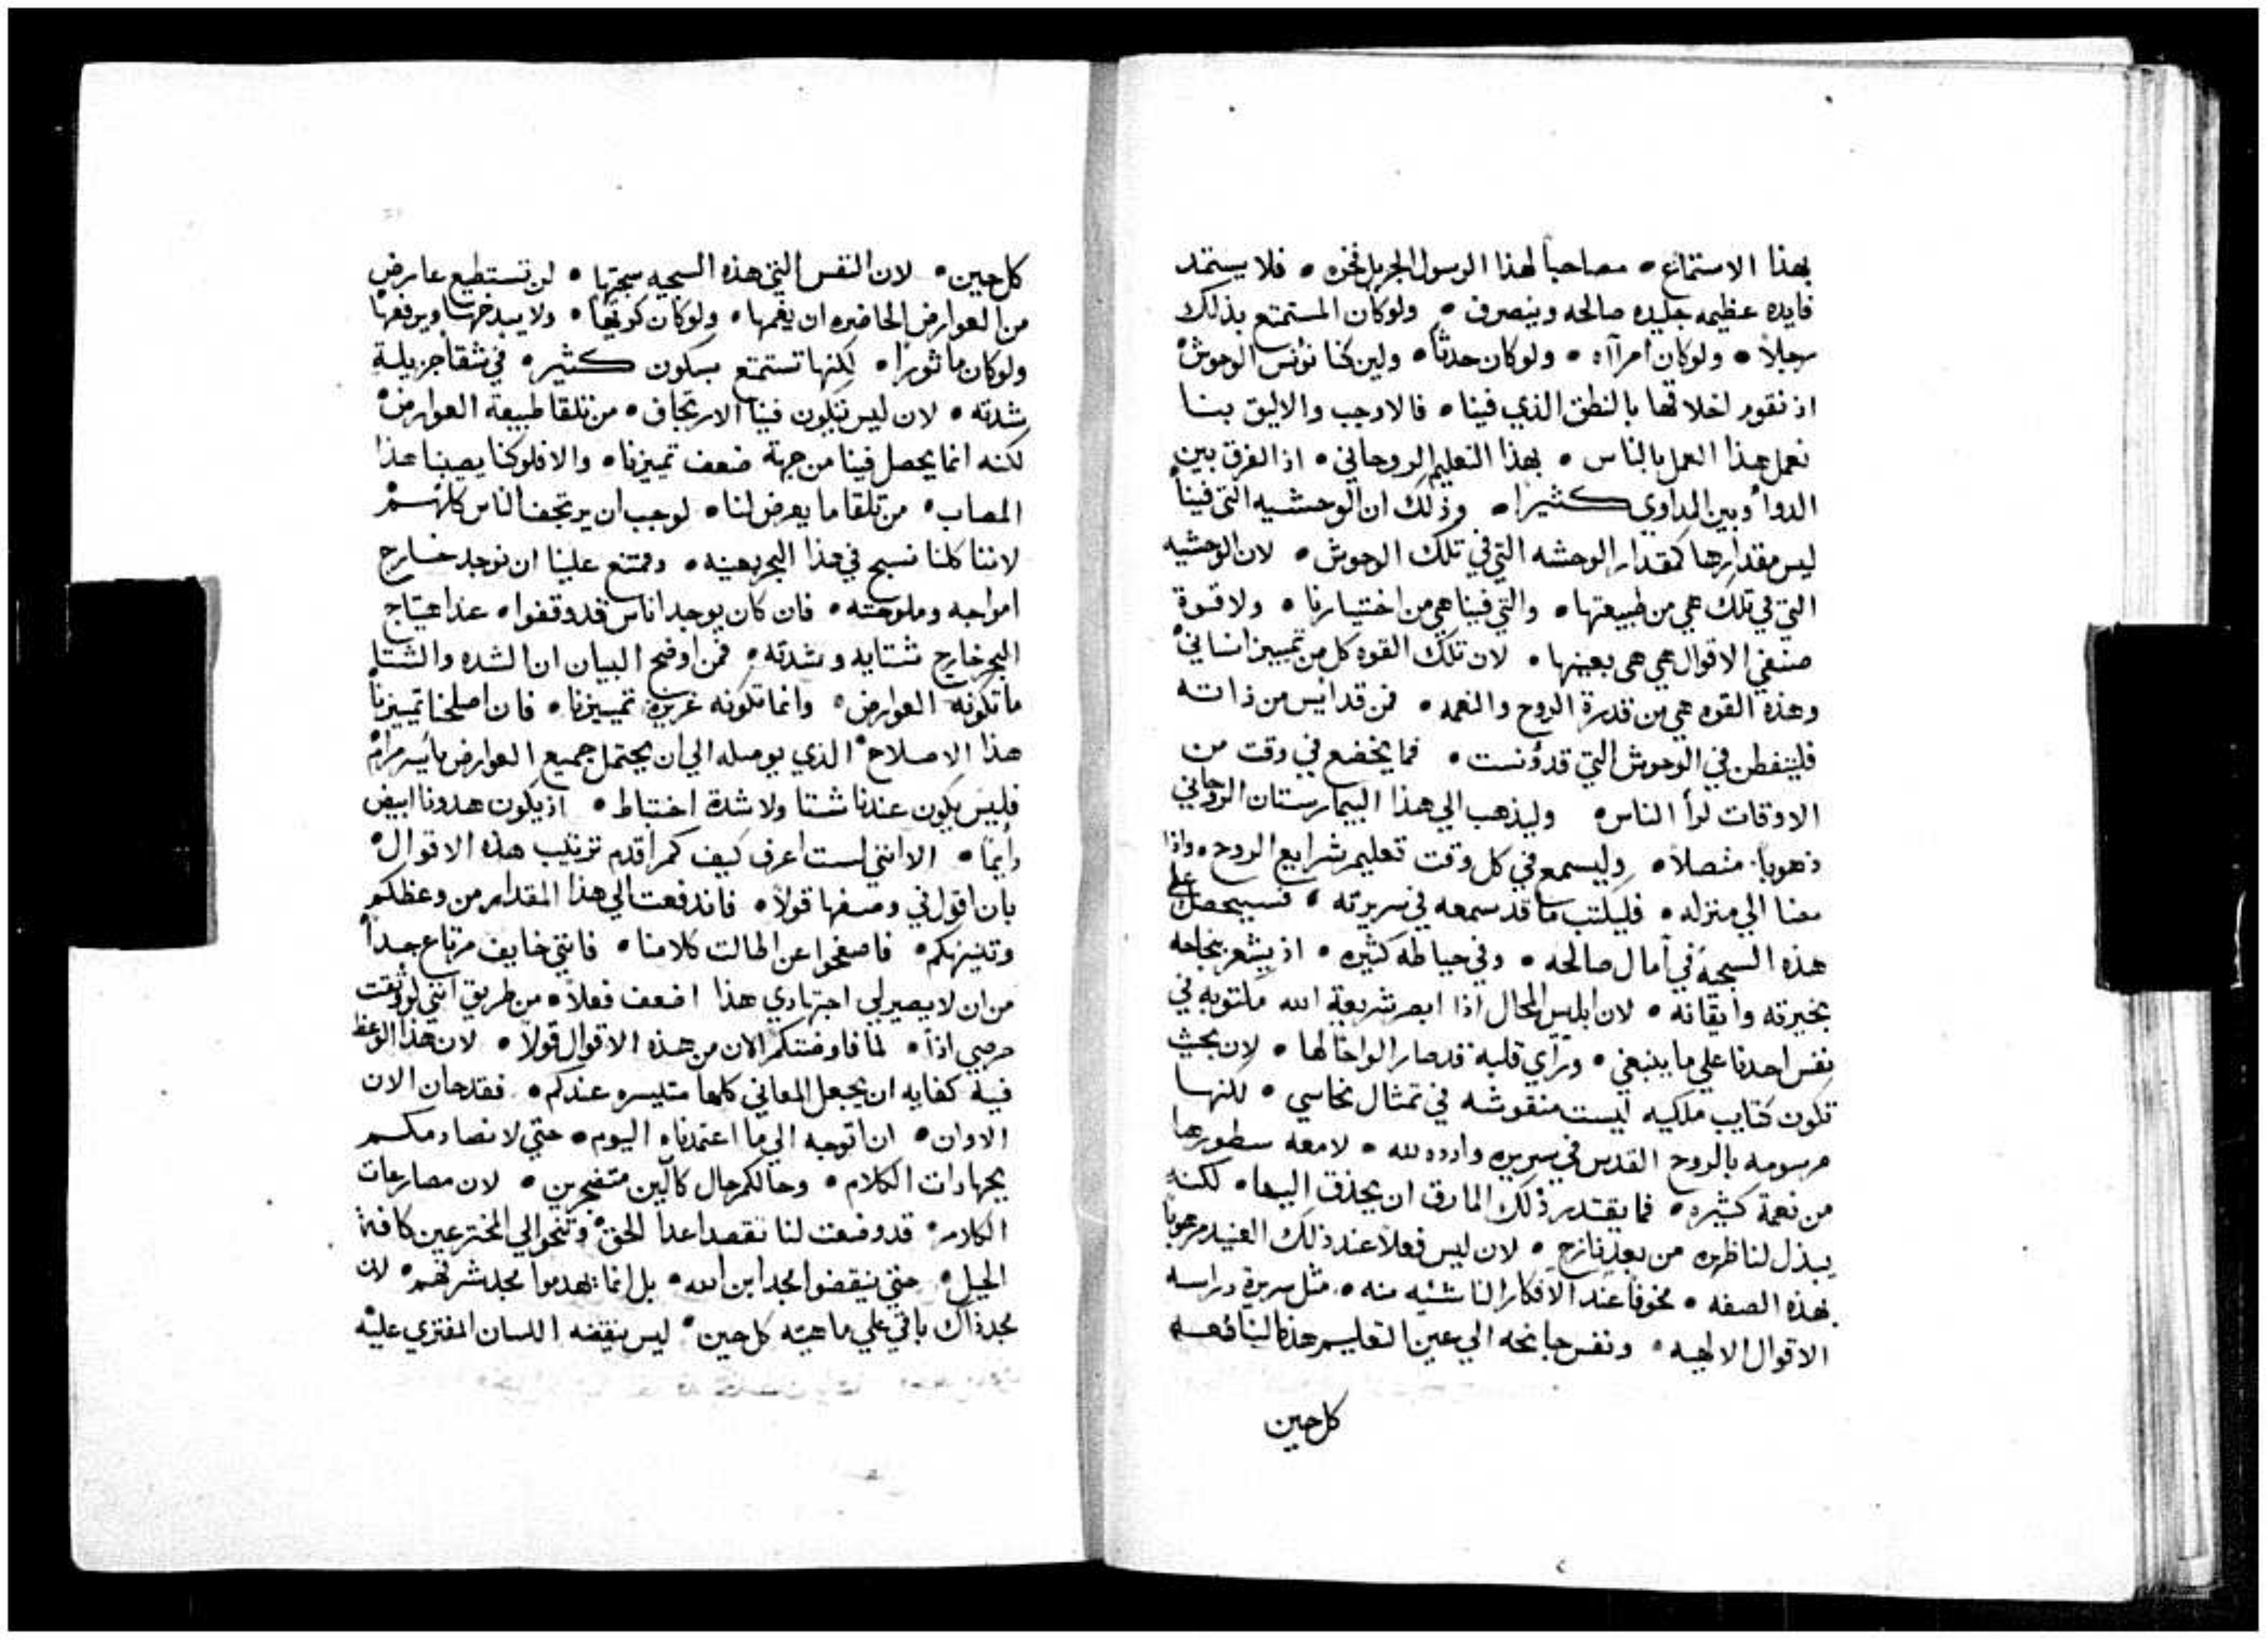 بهذا الاستمتاع • مصاحباً لهذا الرسول الجزيل فخره • فلا يستمد
فايده عظيمه جليده صالحه وينصرف • ولو كان المستمتع بذلك
رجلاً • ولو كان امرآاه • ولو كان حدثاً • ولين كنا نونس الوحوش
اذ نقوم اخلاقها بالنطق الذي فينا • فالاوجب والاليق بنا
نعمل هذا العمل بالناس • بهذا التعليم الروحاني • اذ الفرق بين
الدوأ وبين المداوي كثيراً • وذلك ان الوحشيه التي فينا
ليس مقدارها كمقدار الوحشه التي في تلك الوحوش • لان الوحشيه
التي في تلك هي من طبيعتها • والتي فينا هي من اختيارنا • ولا قوة
صنفي الاقوال هي هي بعينها • لان تلك القوه كل من تمييز انساني
وهذه القوه هي من قدرة الروح والنعمه • فمن قد ايس من ذاته
فليتفطن في الوحوش التي قد ؤنست • فما يخضع في وقت من
الاوقات لرأ الناس • وليذهب الي هذا البيمارستان الروحاني
ذهوباً متصلاً • وليسمع في كل وقت تعليم شرايع الروح • واذا
مضا الي منزله • فليكتب ما قد سمعه في سريرته • فسيحصل علي
هذه السجية في آمال صالحه • وفي حياطه كثيره • اذ يشعر بنجاحه
بخبرته وايقانه • لان ابليس المحال اذا ابصر شريعة الله مكتوبه في
نفس احدنا علي ما ينبغي • ورآي قلبه قد صار الواحاً لها • لان بحيث
تكون كتاب ملكيه ليست منقوشه في تمثال نحاسي • لكنها
مرسومه بالروح القدس في سريره وادده لله • لامعه سطورها
من نعمة كثيره • فما يقتدر ذلك المارق ان يحذق اليها • لكنه
يبذل لنا ظهره من بعد نازح • لان ليس فعلاً عند ذلك العنيد مرهوباً
بهذه الصفه • مخوفاً عند الافكار الناشئيه منه • مثل سريرة دراسه
الاقوال الالهيه • ونفس جانحه الي عين التعليم هذه الينافعه
كل حين
كل حين • لان النفس التي هذه السجيه سجيتها • لن تستطيع عارض
من العوارض الحاضره ان يغمها • ولو كان كونهاً • ولا يبذخها ويرفعها
ولو كان ماثوراً • لكنها تستمتع بسكون كثير • في شقا جزيلة
شدته • لان ليس تتكون فينا الارتجاف • من تلقا طبيعة العوارض
لكنه انما يحصل فينا من جهة ضعف تمييزنا • والا فلو كنا يصيبنا هذا
المصاب • من تلقا ما يعرض لنا • لوجب ان يرتجف الناس كلهم
لاننا كلنا نسبح في هذا البحر بعينه • وممتنع علينا ان نوجد خارج
امواجه وملوحته • فان كان يوجد اناس قد وقفوا • عند اهتياج
البحر خارج شتايه وشدته • فمن اوضح البيان ان الشده والشتا
ما تكونه العوارض • وانما تكونه غريزة تمييزنا • فان اصلحنا تمييزنا
هذا الاصلاح • الذي يوصله الي ان يحتمل جميع العوارض بايسر مرام
فليس يكون عندنا شتا ولا شدة اختباط • اذ يكون هدونا ابيض
دايمًا • الا انني لست اعرف كيف كم اقدم ترتيب هذه الاقوال
بان اقول في وصفها قولاً • فاندفعت الي هذا المقدار من وعظكم
وتنبيهكم • فاصفحوا عن اطالت كلامنا • فانني خايف مرتاع جداً
من ان لا يصير لي اجتهادي هذا اضعف فعلاً • من طريق انني لو وثقت
حرصي اذاً • لما فاوضتكم الان من هذه الاقوال قولاً • لان هذا الوعظ
فيه كفايه ان يجعل المعاني كلها متيسره عندكم • فقد حان الان
الاوان • ان اتوجه الي ما اعتمدناه اليوم • حتي لا نصادمكم
بجهادات الكلام • وحالكم حال كآلين متضجرين • لان مصارعات
الكلام • قد وضعت لنا نقصد اعدا الحق • وتنحوا الي المخترعين كافة
الحيل • حتي ينقضوا مجد ابن الله • بل انما يهدموا مجد شرفهم • لان
مجد ذاك باقي علي ماهيته كل حين • ليس ينقضه اللسان المفتري عليه